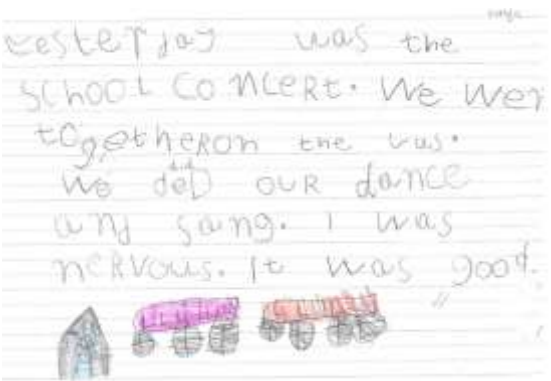 Yesterday was the
SchooL CoNceRt. We wen
togetheRon the vus.
did
We deD ouR dance
and sang. I was
neRvous. It was good.